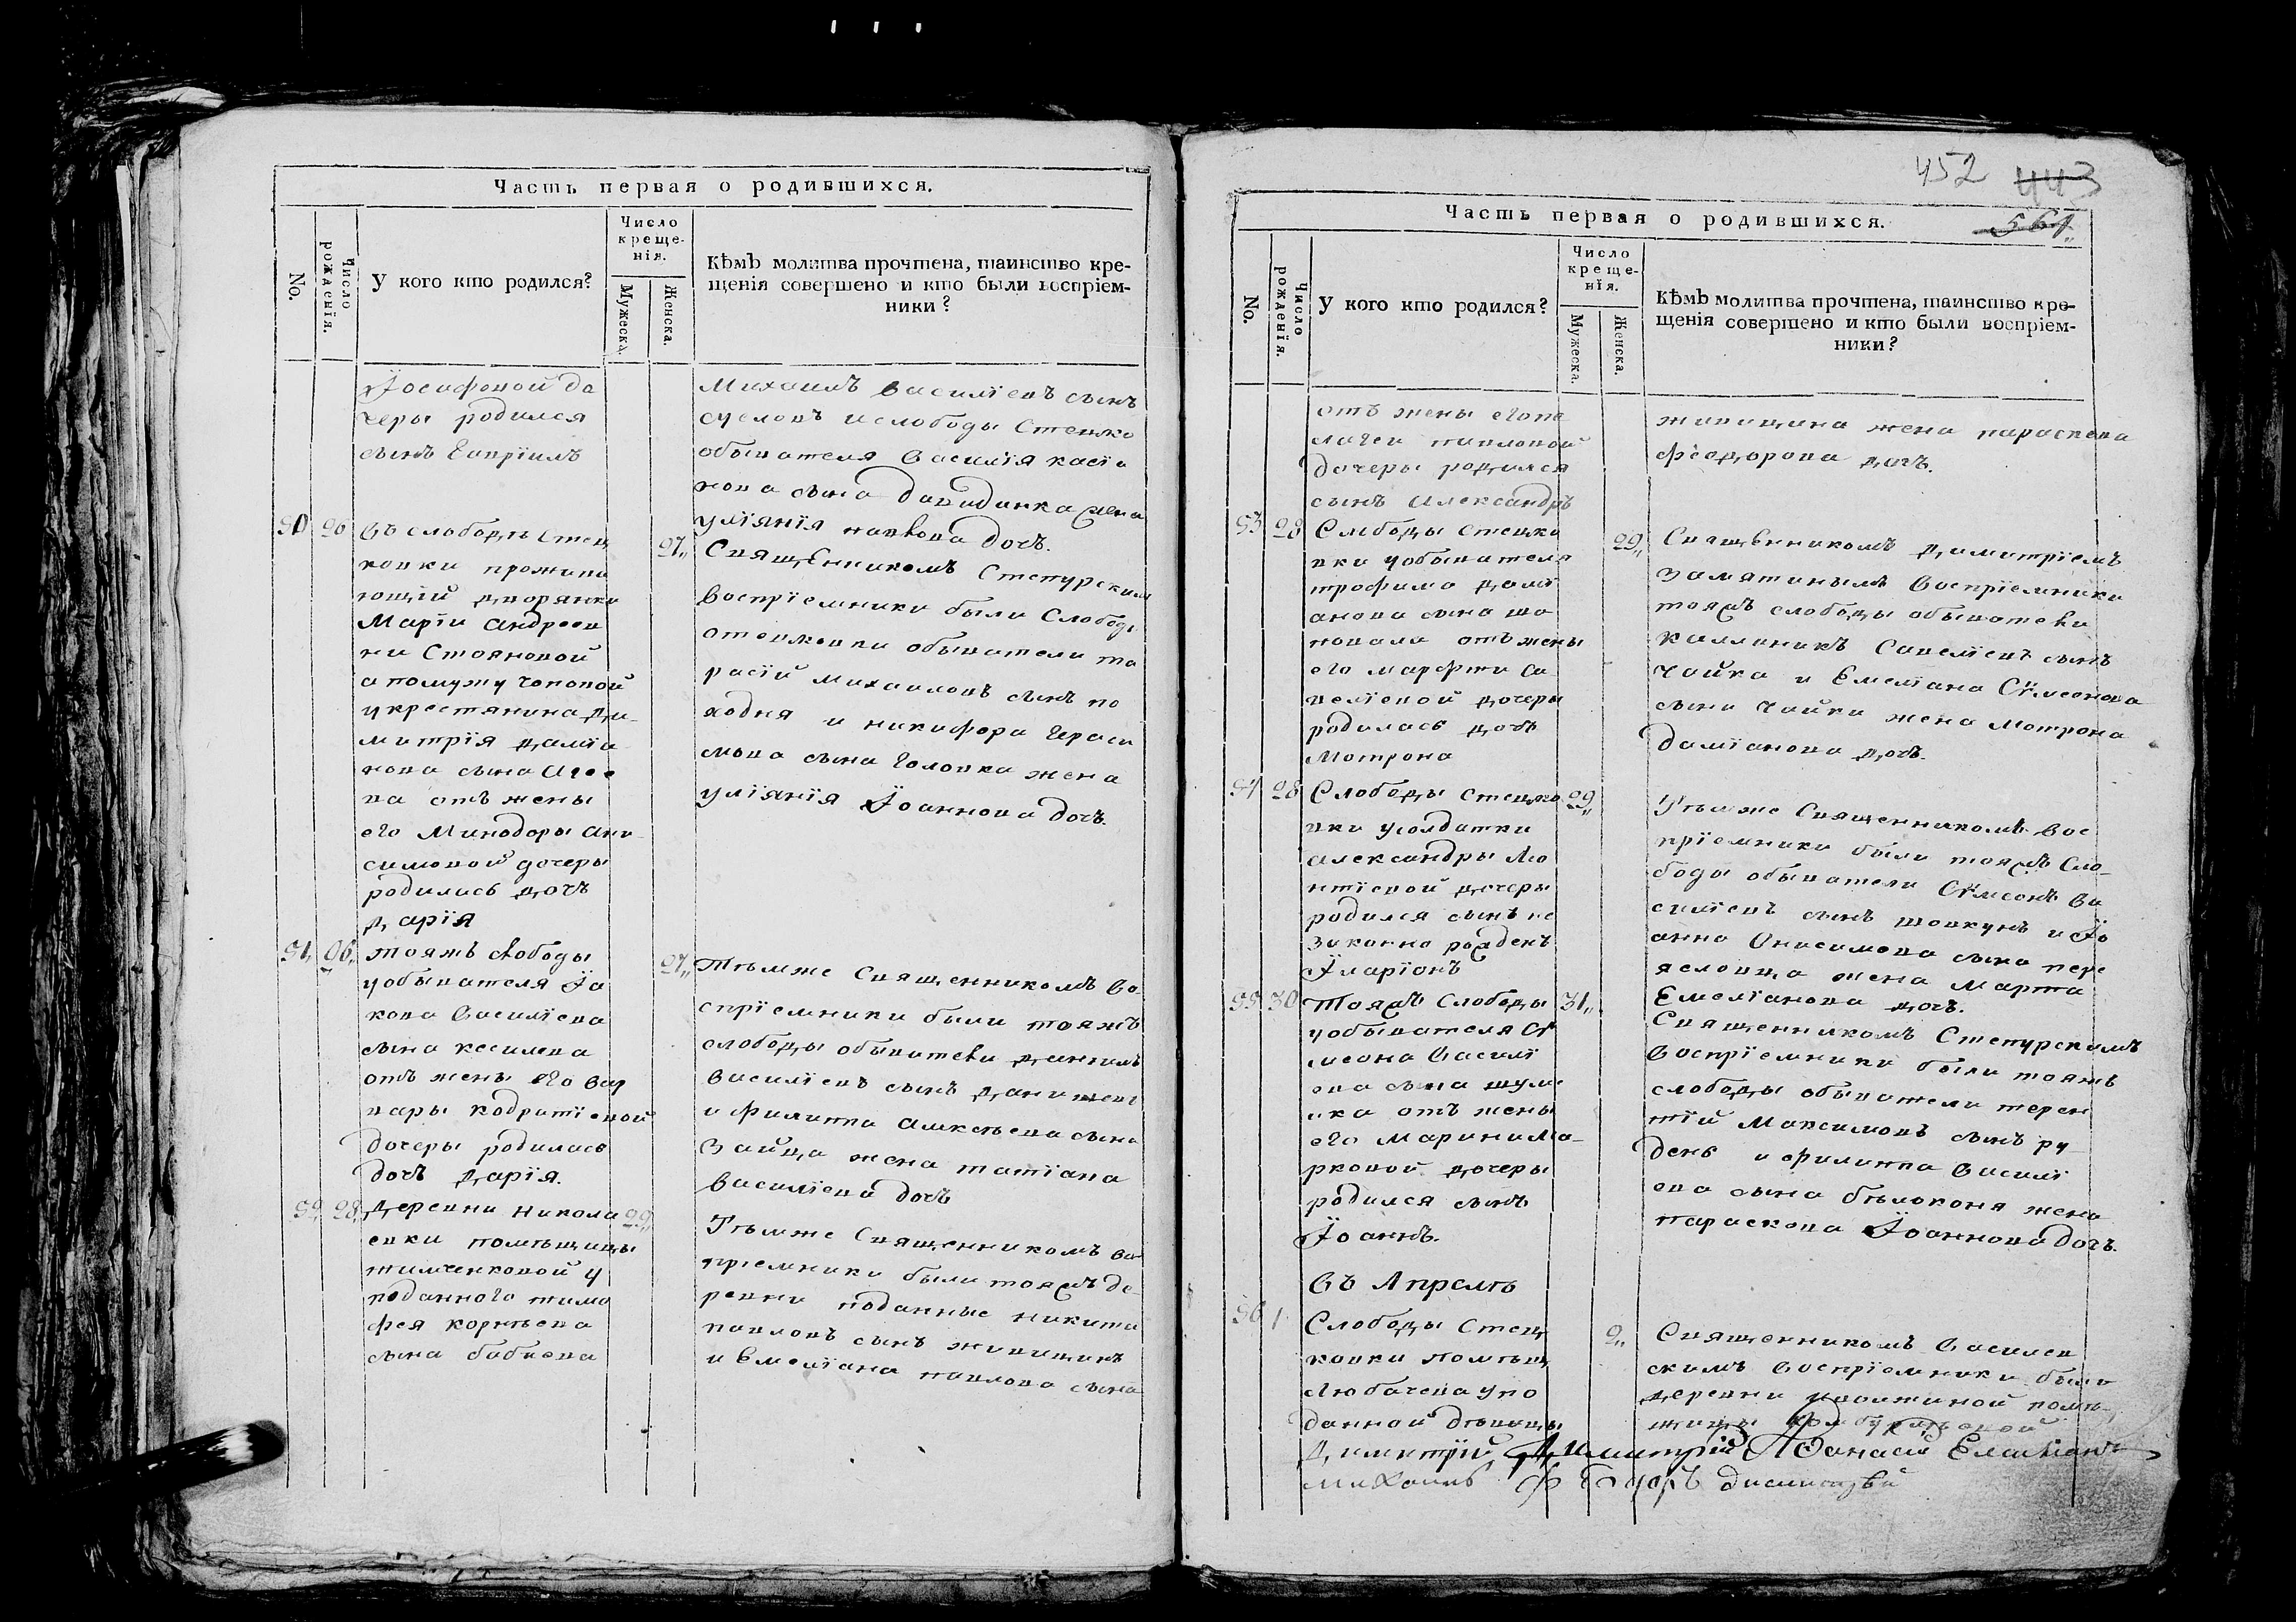 Часть первая о родившихся.
No.
Число рожденія.
У кого кто родился?
Число креще-
нія.
Мужеска.
Женска.
Кѣмъ молитва прочтена, таинство кре-
щенія совершено и кто были воспріем-
ники?
Іосифовой до
черы родился
сынъ Гавріилъ
Михаилъ Василіевъ сынъ
слободы Стецко
обывателя Василія касіа
нова сына жена
уліянія павлова дочь.
50 26
Въ слободѣ Стец
ковки прожива
ющій дворянки
Маріи Андреев
ни Стояновой
а по мужу
у крестянина Ди-
митрія даміа
нова сына
ва отъ жены
его Минодоры Ани
симовой дочеры
родилась дочь
Дарія
27,,
Священникомъ Степурскимъ
воспріемники были Слободы
стецковки обыватели та
расій михаиловъ сынъ по
ходня и никифора Гераси
мова сына Головка жена
уліянія Іоаннова дочь.
51, 26,,
тояжъ слободы
у обывателя Іа
кова Василіева
сына
отъ жены его Вар
вары кодратіевой
дочеры родилась
дочь Дарія.
27,,
Тѣмже Священникомъ во-
спріемники были тояжъ
слободы обыватели даніилъ
Василіевъ сынъ
и филипа Алексѣева сына
Зайца жена татіана
Василіева дочь
52 28,
Деревни Никола
евки помѣщицы
тимченковой у
поданного тимо
фея корнѣева
сына
29,,
Тѣмже Священникомъ во
пріемники были тояжъ де-
ревни поданные никита
павловъ сынъ
и Емеліана павлова сына
452 443
561,,
Часть первая о родившихся.
No.
Число рожденія.
У кого кто родился?
Число креще-
нія.
Мужеска.
Женска.
Кѣмъ молитва прочтена, таинство кре-
щенія совершено и кто были воспріем-
ники?
отъ жены его пе
лагеи павловой
дочеры родился
сынъ Александръ
жена параскева
феодорова дочь.
53 28
Слободы Стецко
вки у обывателя
трофима дамі
анова сына ша
повала отъ жены
его марфи са
веліевой дочеры
родилась дочь
Мотрона
29,,
Священникомъ димитріемъ
Замятинымъ воспріемники
тояжъ слободы обыватели
каллиникъ Савеліевъ сынъ
Чайка и Емеліана Сѵмеонова
сына Чайки жена Мотрона
даміанова дочь.
54 28
Слободы Стецко
вки у солдатки
александры Ле
нтіевой дочеры
родился сынъ не
законно рожденъ
Іларіонъ
29,,
Тѣмже Священникомъ вос
пріемники были тояжъ Сло-
боды обыватели Сѵмеонъ Ва
силіевъ сынъ шовкунъ и Іо
анна Онисимова сына пере
яславца жена Марта
Емеліанова дочь.
55 30
Тояжъ Слободы
у обывателя Сѵ
меона Василі
ева сына шули
ика отъ жены
его Марини Ма-
рковой дочеры
родился сынъ
Іоаннъ.
31,,
Священникомъ Степурскимъ
воспріемники были тояжъ
слободы обыватели терен
тій Максимовъ сынъ ру
день и филиппа Василі
ева сына бѣлоконя жена
параскева Іоаннова дочь.
Въ Апрелѣ
56 1
Слободы Стец
ковки помѣщ
Любачева у по
данной дѣвицы
2,,
Священникомъ Василев
скимъ воспріемники были
деревни помѣ
щицы
Димитрій Димитрій Афанасій
михаилъ